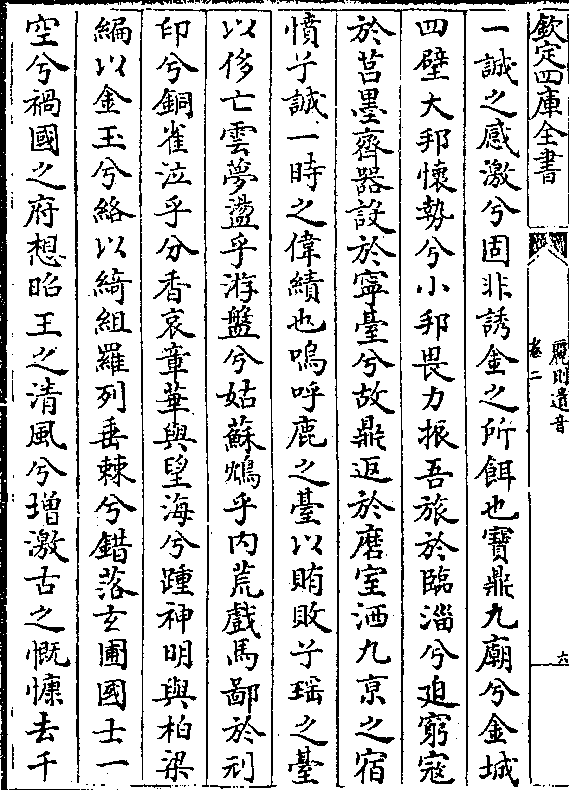 欽定四庫全書
麗則遺音
卷二
六
一誠之感激兮固非誘金之所餌也寶鼎九廟兮金城
四壁大邦懷勢兮小邦畏力振吾旅於臨淄兮迫窮寇
於莒墨齊器設於寧臺兮故鼎返於磨室洒九京之宿
憤兮誠一時之偉績也嗚呼鹿之臺以賄敗兮瑶之臺
以侈亡雲夢盪乎游盤兮姑蘇鴆乎内荒戲馬鄙於刓
印兮銅雀泣乎分香哀章華與望海兮踵神明與柏梁
編以金玉兮絡以綺組羅列垂棘兮錯落玄圃國士一
空兮禍國之府想昭王之清風兮增激古之慨慷去千